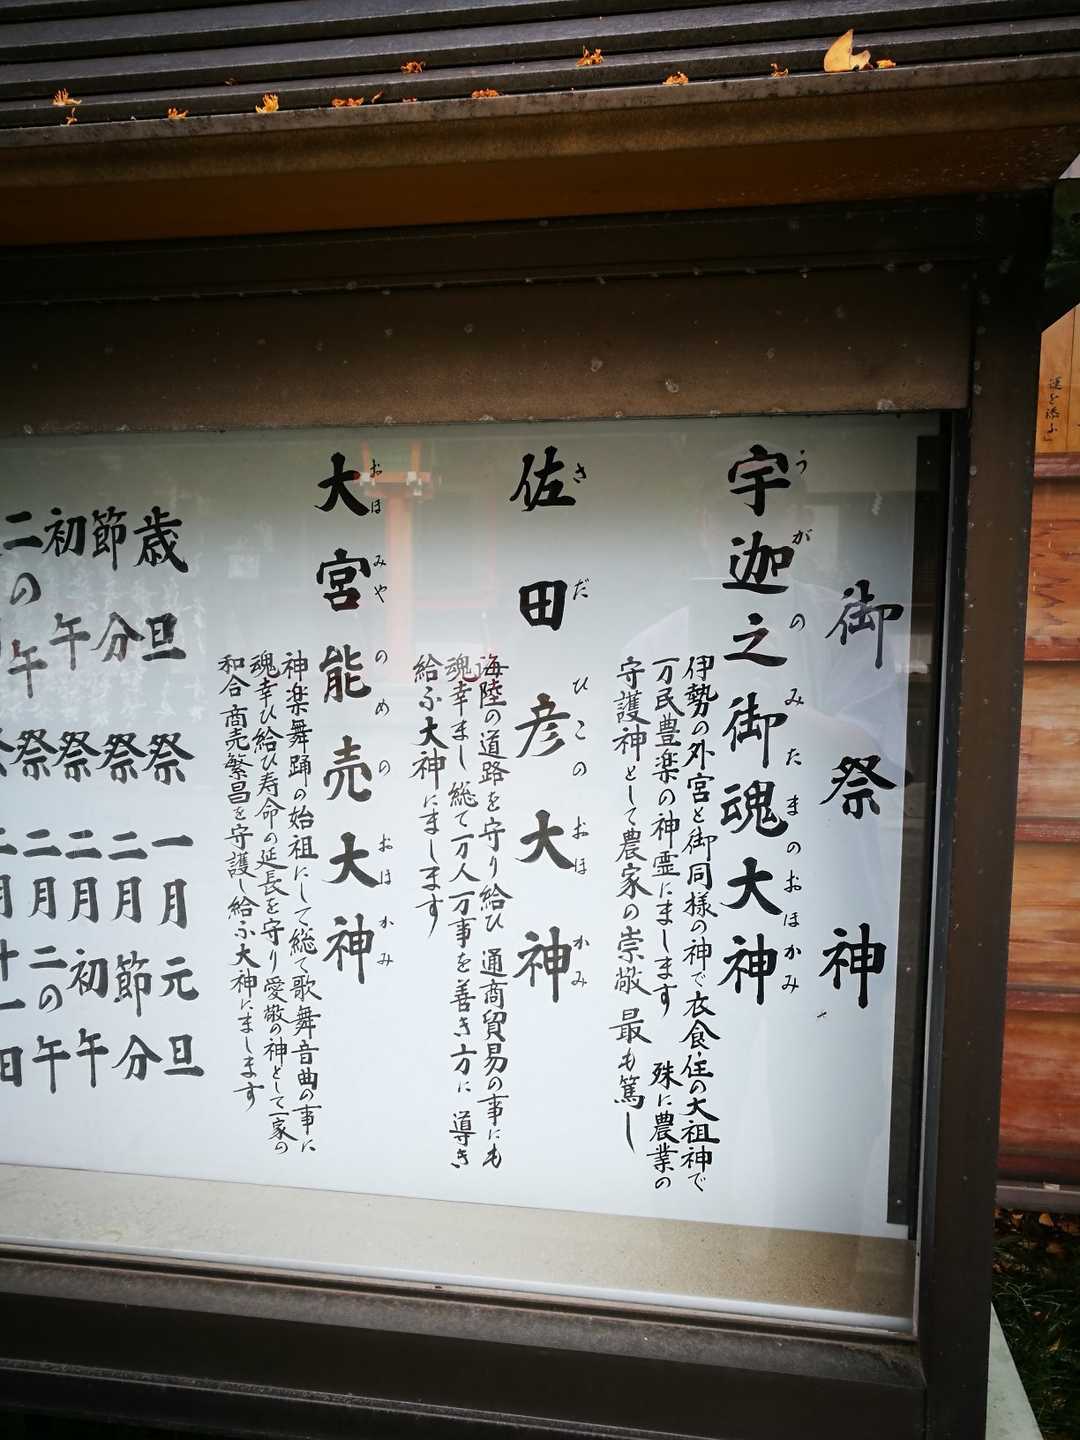 御祭神
宇迦之御魂大神
うがのみたまのおほかみ
伊勢の外宮と御同様の神で衣食住の大祖神で
万民豊楽の神霊にまします　殊に農業の
守護神として農家の崇敬最も篤し
佐田彦大神
さだひこのおほかみ
海陸の道路を守り給ひ通商貿易の事にも
魂幸まし総て万人万事を善き方に導き
給ふ大神にまします
大宮能売大神
おほみやのめのおほかみ
神楽舞踊の始祖にして総て歌舞音曲の事に
魂幸ひ給ひ寿命の延長を守り愛敬の神として一家の
和合商売繁昌を守護し給ふ大神にまします
歳旦祭　一月元旦
節分祭　二月節分
初午祭　二月初午
二の午祭　二月二の午
月十一日